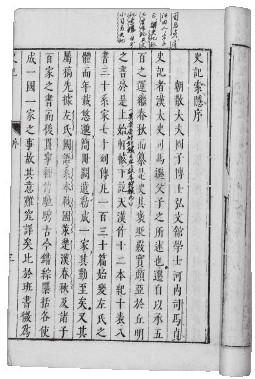 史記索隱序
朝散大夫國子博士弘文館學士河內司馬貞
史記者漢太史司馬遷父子之所述也遷自以承五
百之運繼春秋而纂是史其褒貶覈實頗亞於丘明
之書於是上始軒轅下訖天漢作十二本紀十表八
書三十系家七十列傳凡一百三十篇始變左氏之
體而年載悠邈簡冊闕遺勒成一家其勤至矣又其
屬稿先據左氏國語系本戰國策楚漢春秋及諸子
百家之書而後貫穿經傳馳騁古今錯綜隱括各使
成一國一家之事故其意難究詳矣比於班書微為